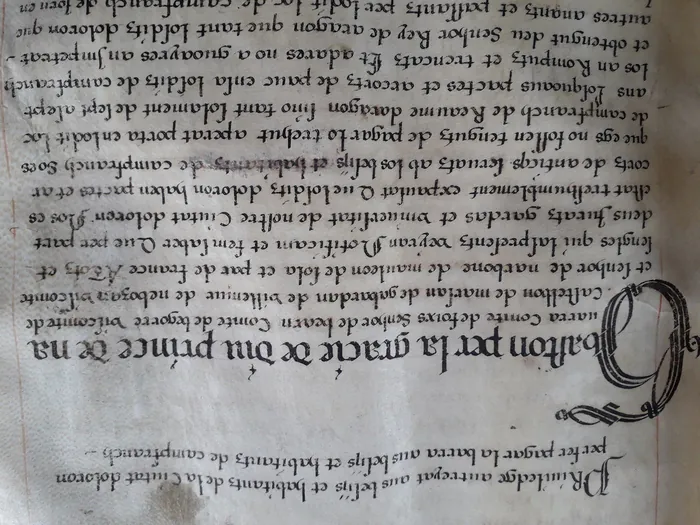 PRiuiledge autreyat aus besijs et habitants de la Ciutat doloron
per fer pagar la barra aus besijs et habitants de campfranch
Gaston per la gracie de Diu prince de na
uarra Comte de foixs Senhor de bearn Comte de begorre viscomte de
Castelbon de marsan de gabardan de villemur de nebozan viscomte
et senhor de narbone de mauleon de sola et par de france A Totz et
sengles qui las presents veyran Notificam et fem saber Que per part
deus Jurats gardas et vniuersitat de nostre Ciutat doloron Nos es
estat treshumblement expausat Que losditz doloron haben pactes et ar
corts de antiqs seruatz ab los besijs et habitants de campfranch Soes
que egs no fossen tenguts de pagar lo trebut aperat porta en lodit loc
de campfranch de Reaume daragon sino tant solament de sept a sept
ans Losquoaus pactes et accorts de pauc ensa losditz de campfranch
los an Romputz et trencatz Et adares no a guoayres an Impetrat
et obtengut deu Senhor Rey de aragon que tant losditz doloron que
autres anants et passants per lodit loc de campfranch